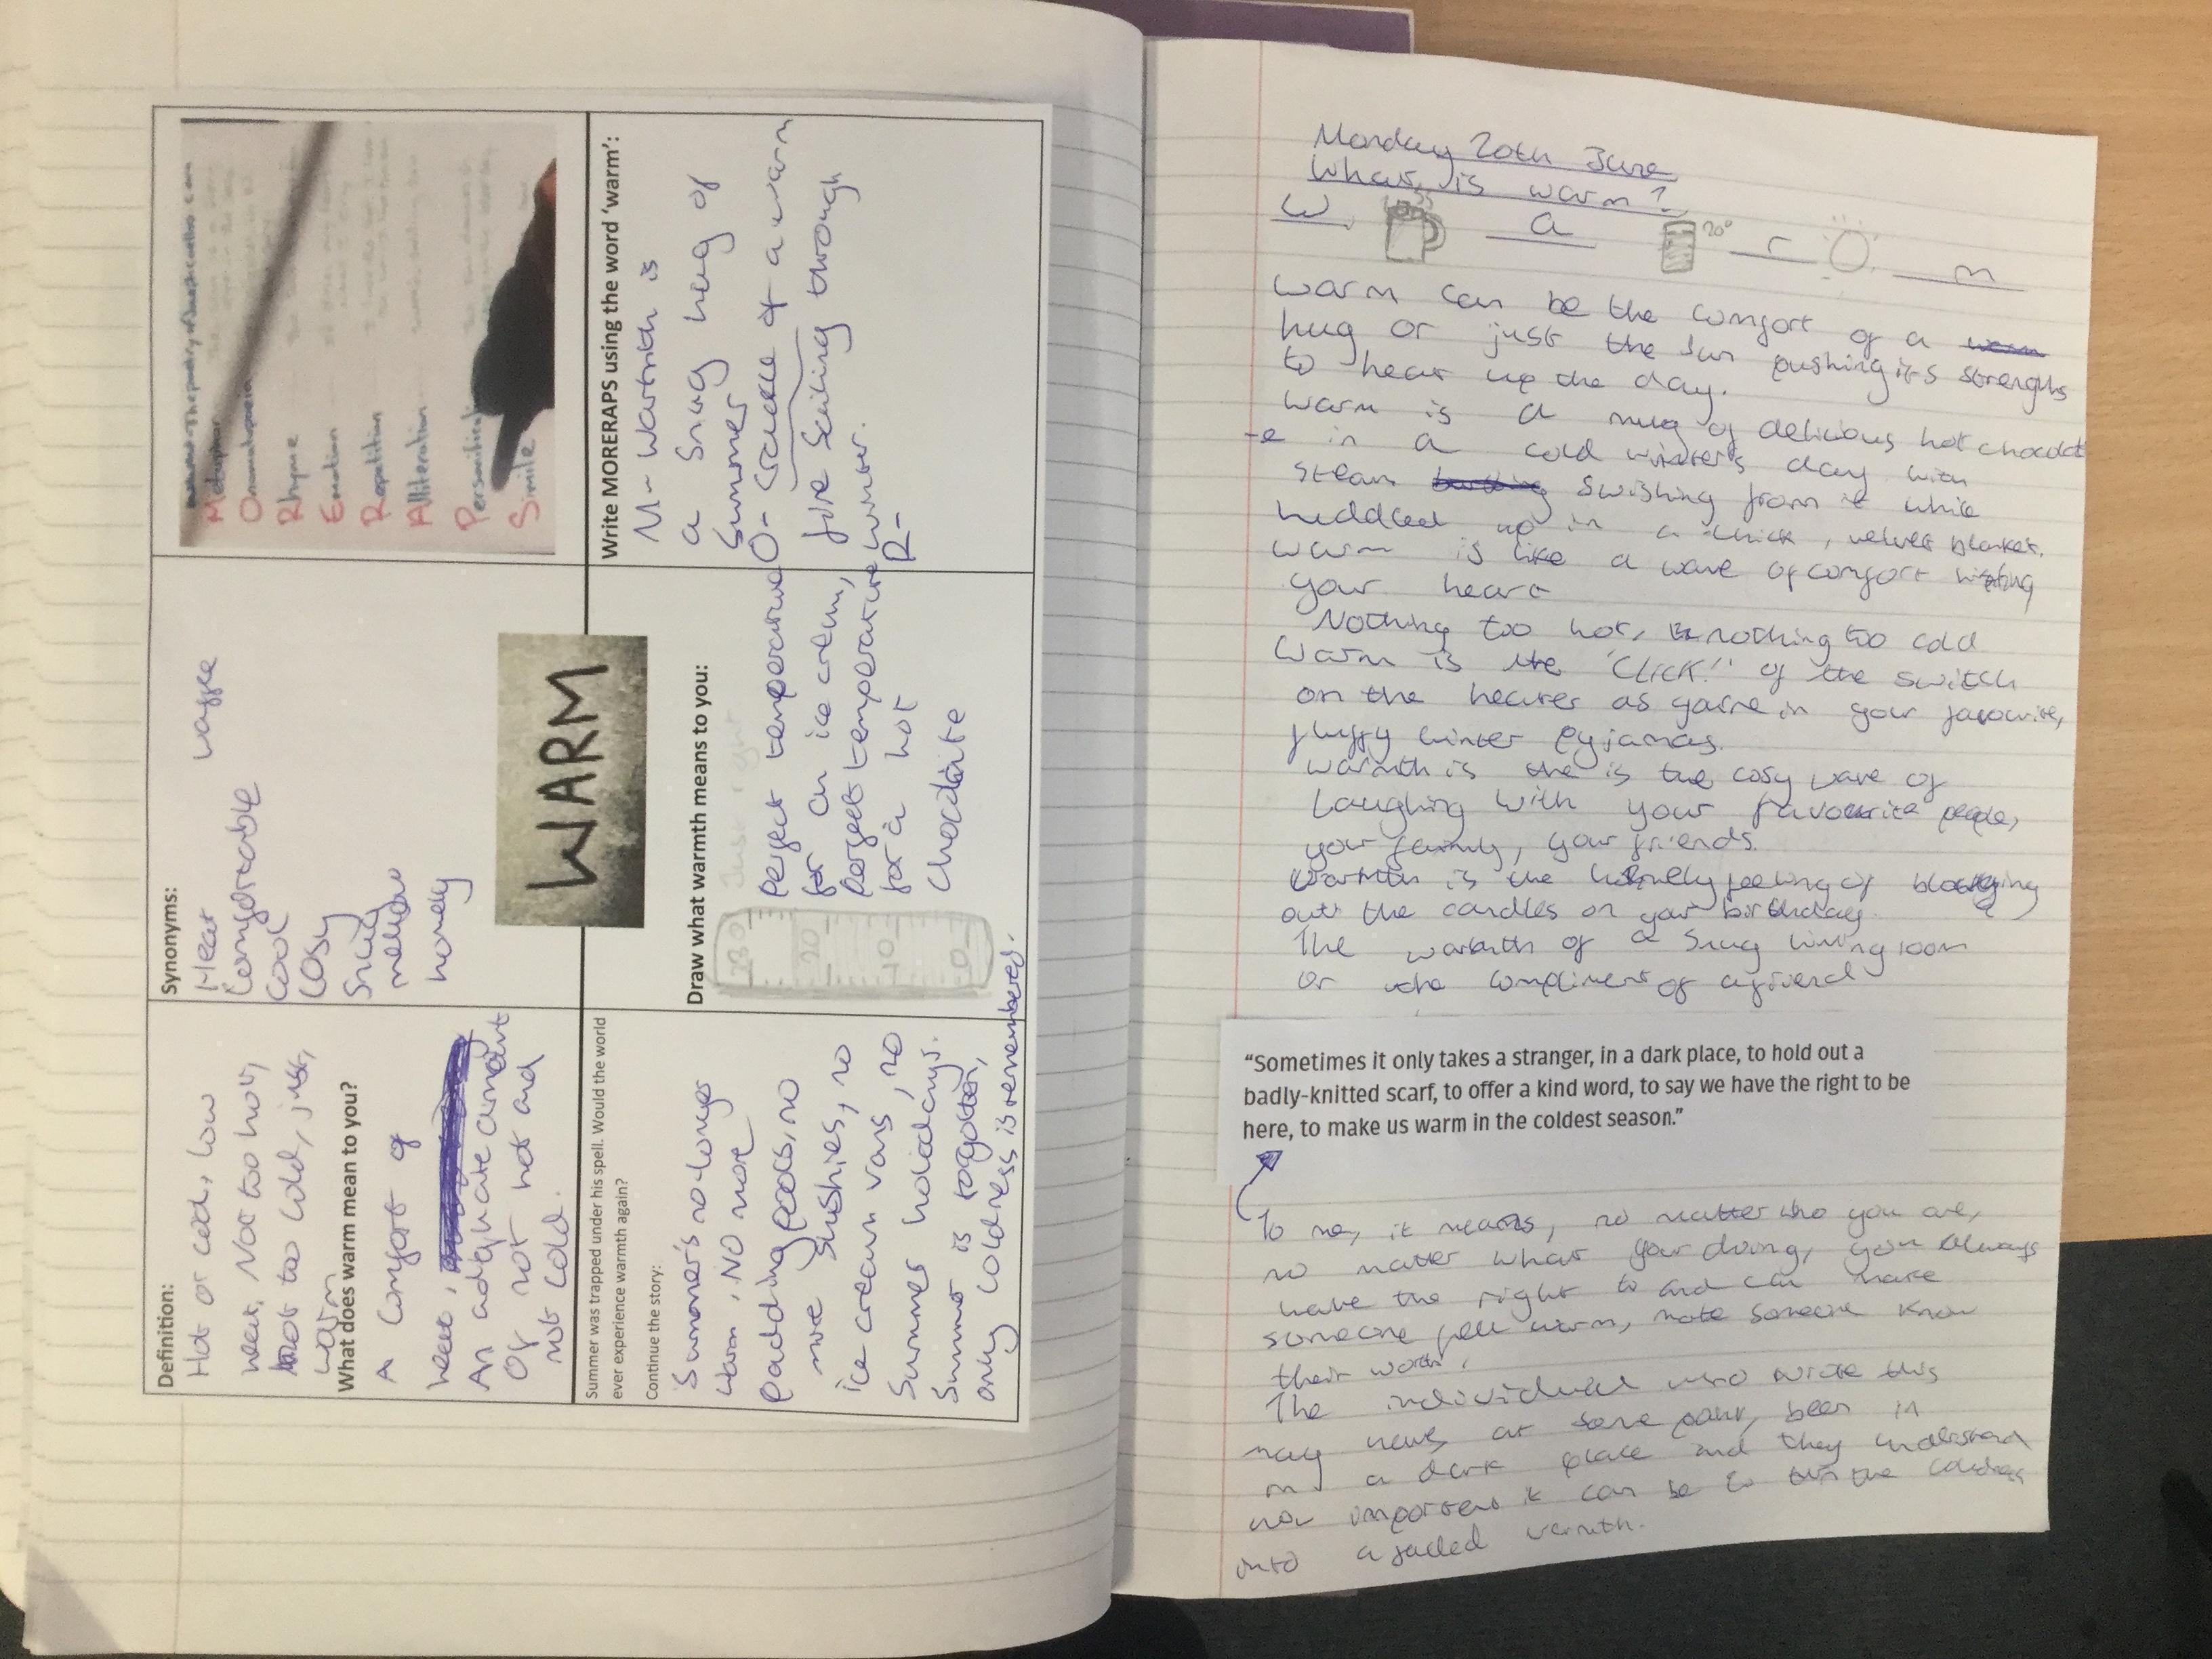 Definition:
Hot or cold, low
heat, Not too hot,
not to cold, just,
warm
What does warm mean to you?
A comfort of
heat,
An adequate amount
Of not hot and
not cold.
Synonyms:
Heat
Comfortable
Cool
Cosy
Snug
mellow
homely
Metaphor
Onomatopoeia
Rhyme
Emotion
Repetition
Alliteration
Personificat
Simile
WARM
Summer was trapped under his spell. Would the world
ever experience warmth again?
Continue the story:
Summer's no longer
warm. No more
paddling pools, no
more slushies, no
ice cream vans, no
Summer holidays.
Summer is fogotten,
only coldness is remembered.
Draw what warmth means to you:
Just right
30
20
10
0
Perfect temperature
for an ice cream,
Perfect temperature
for a hot
chocolate
Write MORERAPS using the word 'warm':
M- Warmth is
a snug hug of
Summer
O- Crackle of a warm
fire through
winter.
R-
Monday 20th June
What is warm?
w a 20° r m
Warm can be the comfort of a warm
hug or just the sun pushing its strengths
to heat up the day.
Warm is a mug of delicious hot chocolat
-e in a cold winter's day with
steam swishing from it while
huddled up in a thick, velvet blanket.
Warm is like a wave of comfort hitting
your heart
Nothing too hot, nothing too cold
Warm is the "Click!" of the switch
on the heater as in your favourite,
fluffy winter pyjamas.
Warmth is the is the cosy wave of
Laughing with your favourite people,
your family, your friends.
Warmth is the homely feeling of blowing
out the candles on your birthday.
The warmth of a snug living room
or the compliment of a friend
"Sometimes it only takes a stranger, in a dark place, to hold out a
badly-knitted scarf, to offer a kind word, to say we have the right to be
here, to make us warm in the coldest season."
To me, it means, no matter who you are,
no matter what your doing, you always
have the right to and can make
someone feel warm, make someone know
their worth.
The individual who wrote this
may have, at some point, been in
a dark place and they understand
how important it can be to turn the coldness
into a warmth.